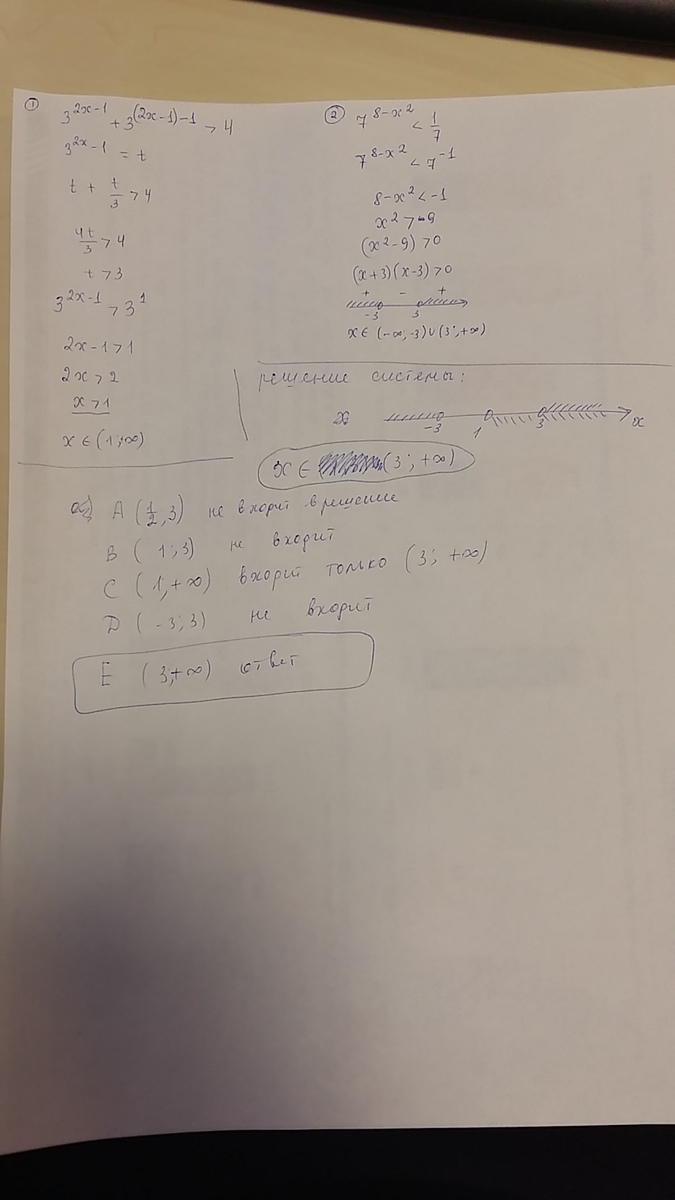 ① 3^{2x-1} + 3^{(2x-1)-1} > 4
3^{2x-1} = t
t + t/3 > 4
4t/3 > 4
t > 3
3^{2x-1} > 3^1
2x-1 > 1
2x > 2
x > 1
x ∈ (1; ∞)
② 7^{8-x^2} < 1/7
7^{8-x^2} < 7^{-1}
8-x^2 < -1
x^2 > 9
(x^2-9) > 0
(x+3)(x-3) > 0
+ - +
-3 3
x ∈ (-∞; -3) ∪ (3; +∞)
решение системы:
-3 1 3 x
x ∈ (3; +∞)
A (1/2, 3) не входит в решение
B (1; 3) не входит
C (1, +∞) входит только (3; +∞)
D (-3; 3) не входит
E (3; +∞) ответ